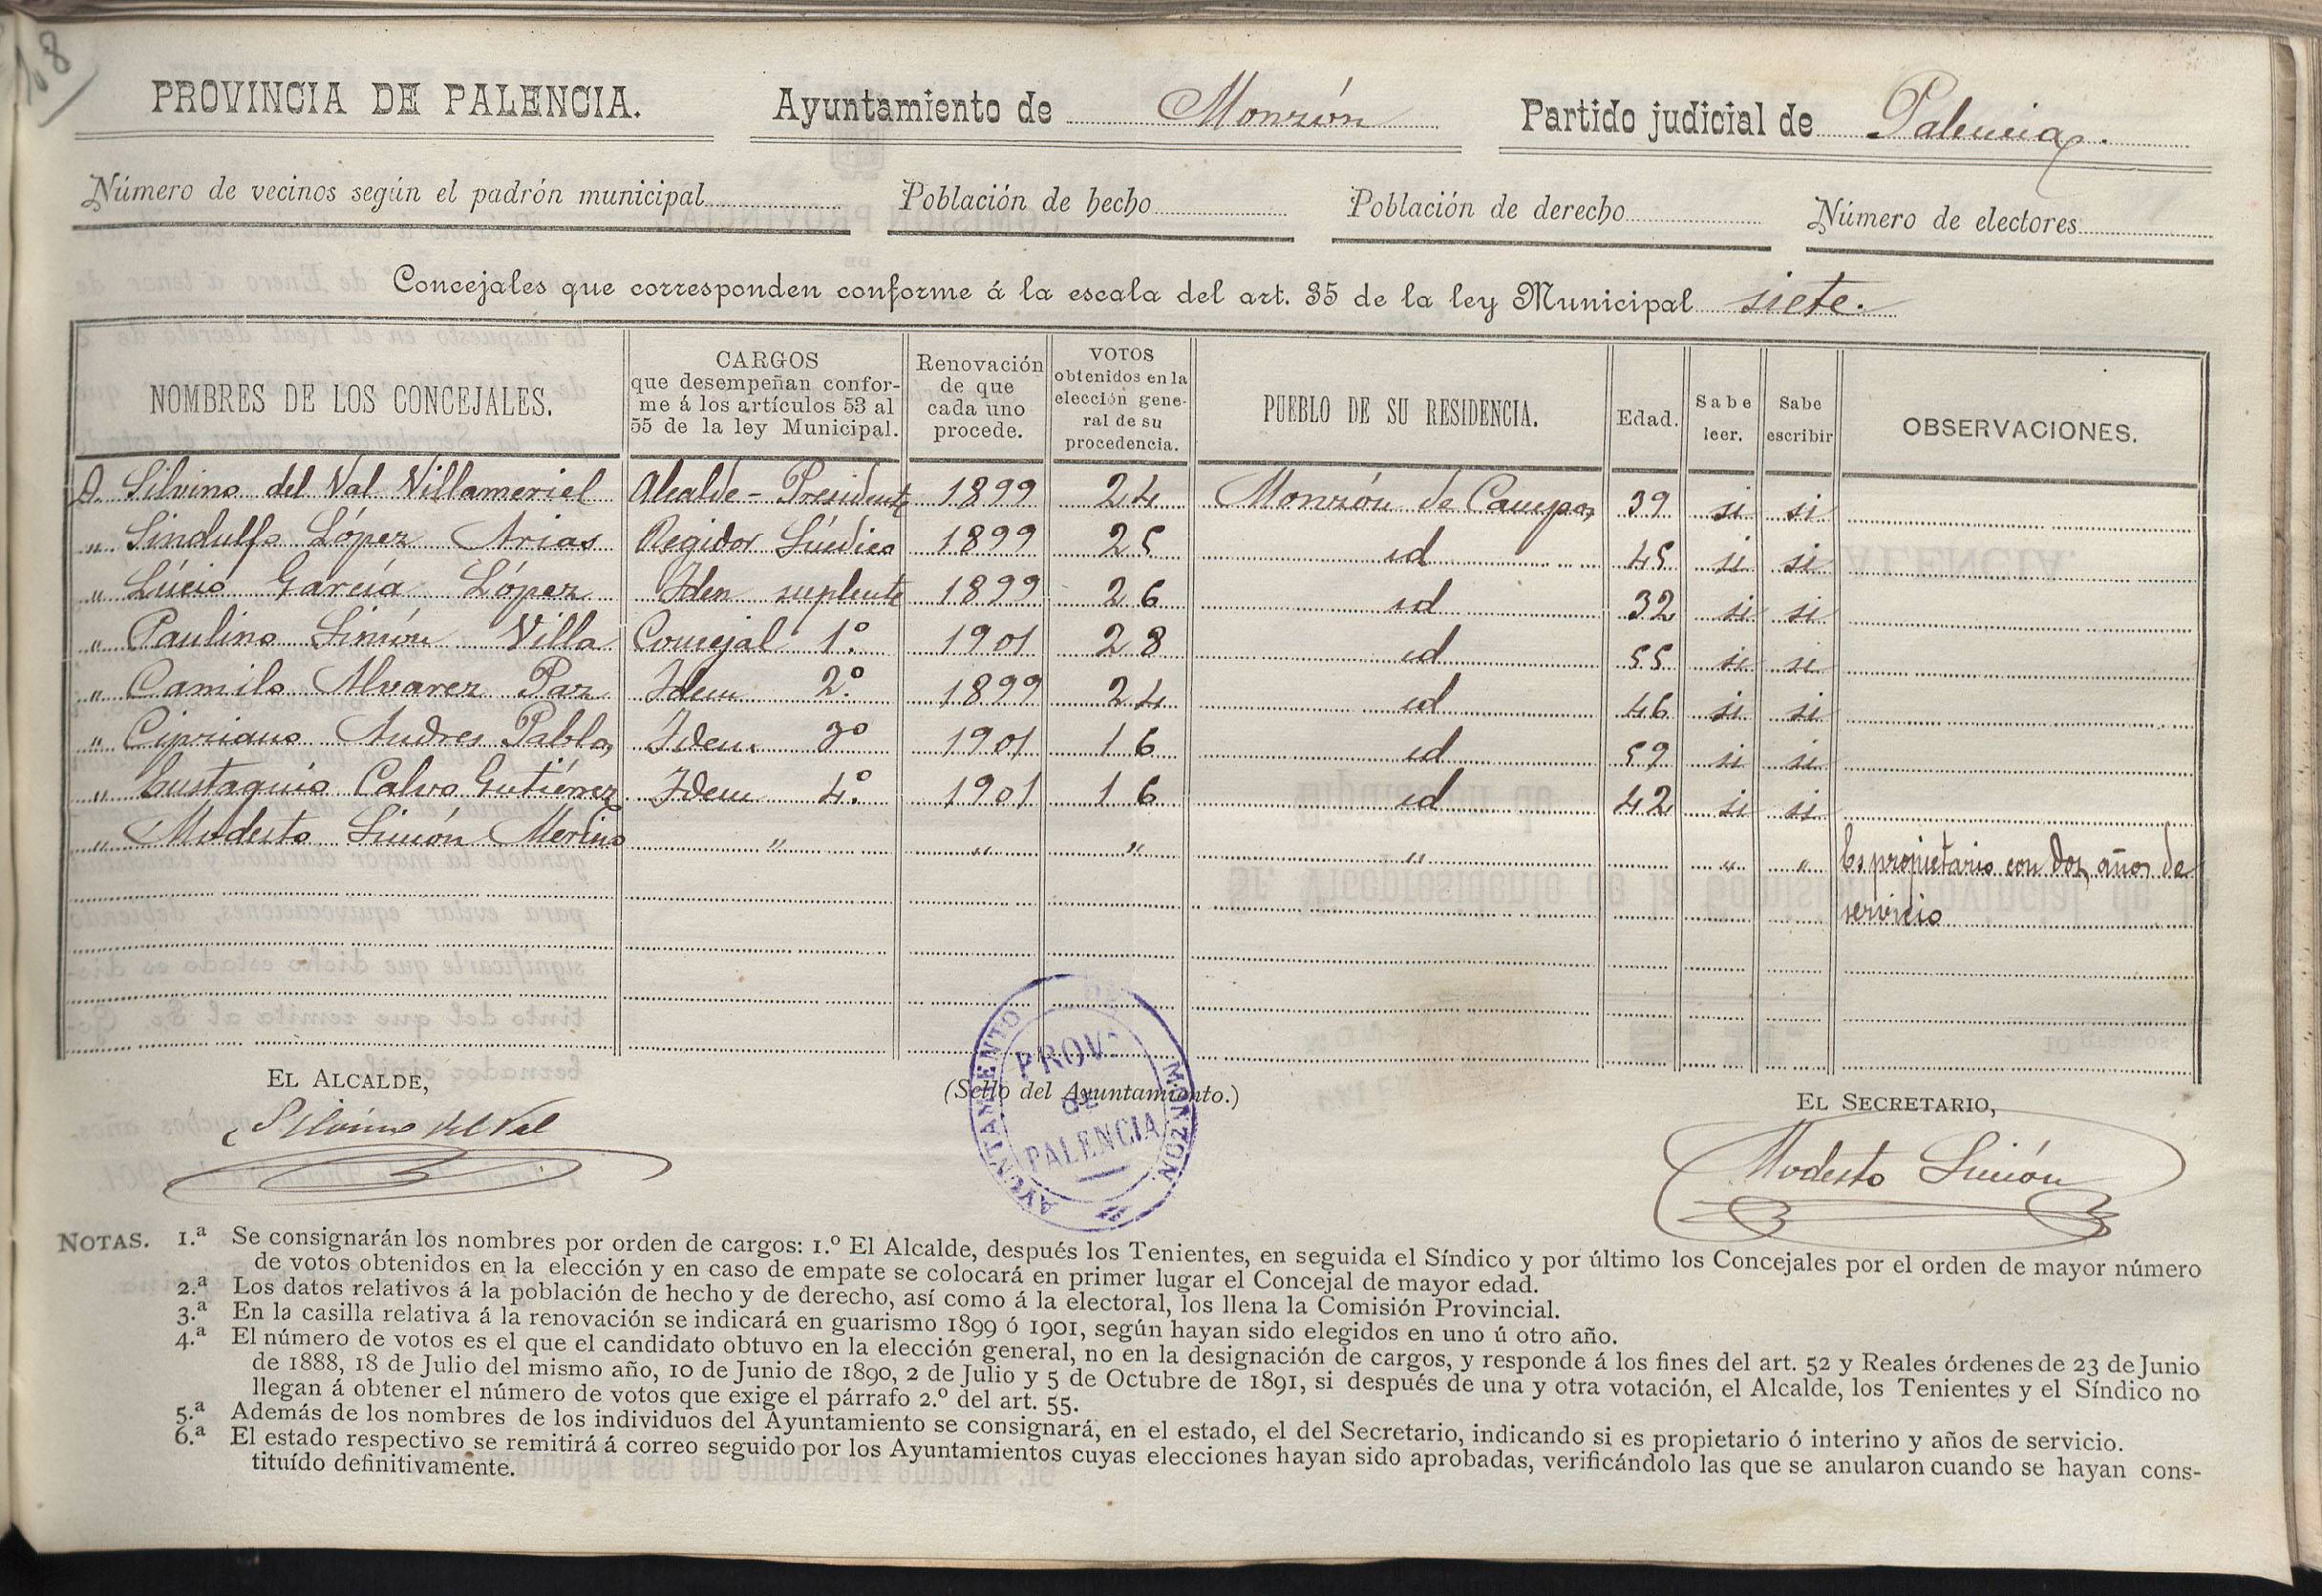 108
PROVINCIA DE PALENCIA. Ayuntamiento de Monzón Partido judicial de Palencia.
Número de vecinos según el padrón municipal Población de hecho Población de derecho Número de electores
Concejales que corresponden conforme á la escala del art. 35 de la ley Municipal siete.
NOMBRES DE LOS CONCEJALES. CARGOS que desempeñan confor-me á los artículos 53 al 55 de la ley Municipal. Renovación de que cada uno procede. VOTOS obtenidos en la elección gene-ral de su procedencia. PUEBLO DE SU RESIDENCIA. Edad. Sabe leer. Sabe escribir OBSERVACIONES.
D. Silvino del Val Villameriel Alcalde - Presidente 1899 24 Monzón de Campos 39 si si
" Sindulfo López Arias Regidor Síndico 1899 25 id 45 si si
" Lúcio García López Iden suplente 1899 26 id 32 si si
" Paulino Simón Villa Concejal 1.º 1901 28 id 55 si si
" Camilo Alvarez Paz Idem 2.º 1899 24 id 46 si si
" Cipriano Andres Pablos Idem 3º 1901 16 id 59 si si
" Eustaquio Calvo Gutiérrez Idem 4.º 1901 16 id 42 si si
" Modesto Simón Merino " " " " " " Es propietario con dos años de
servicio
EL ALCALDE, (Sello del Ayuntamiento.) EL SECRETARIO,
Silvino del Val
AYUNTAMIENTO DE MONZON
PROV.ª
DE
PALENCIA
Modesto Simón
NOTAS. 1.ª Se consignarán los nombres por orden de cargos: 1.º El Alcalde, después los Tenientes, en seguida el Síndico y por último los Concejales por el orden de mayor número
de votos obtenidos en la elección y en caso de empate se colocará en primer lugar el Concejal de mayor edad.
2.ª Los datos relativos á la población de hecho y de derecho, así como á la electoral, los llena la Comisión Provincial.
3.ª En la casilla relativa á la renovación se indicará en guarismo 1899 ó 1901, según hayan sido elegidos en uno ú otro año.
4.ª El número de votos es el que el candidato obtuvo en la elección general, no en la designación de cargos, y responde á los fines del art. 52 y Reales órdenes de 23 de Junio
de 1888, 18 de Julio del mismo año, 10 de Junio de 1890, 2 de Julio y 5 de Octubre de 1891, si después de una y otra votación, el Alcalde, los Tenientes y el Síndico no
llegan á obtener el número de votos que exige el párrafo 2.º del art. 55.
5.ª Además de los nombres de los individuos del Ayuntamiento se consignará, en el estado, el del Secretario, indicando si es propietario ó interino y años de servicio.
6.ª El estado respectivo se remitirá á correo seguido por los Ayuntamientos cuyas elecciones hayan sido aprobadas, verificándolo las que se anularon cuando se hayan cons-
tituído definitivamente.